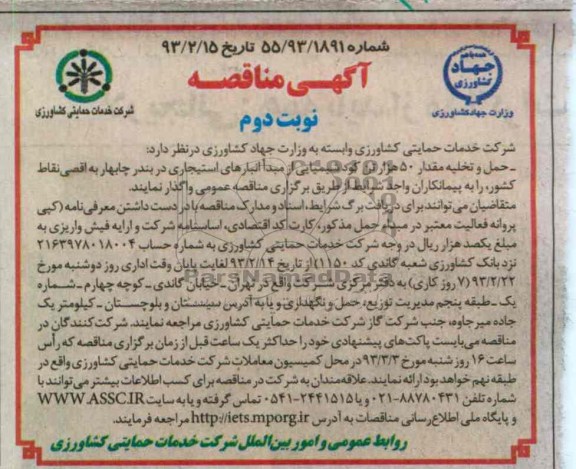 شماره ۵۵/۹۳/۱۸۹۱ تاریخ ۹۳/۲/۱۵
آگهی مناقصه
نوبت دوم
جهاد
کشاورزی
وزارت جهاد کشاورزی
شرکت خدمات حمایتی کشاورزی
شرکت خدمات حمایتی کشاورزی وابسته به وزارت جهاد کشاورزی درنظر دارد:
ـ حمل و تخلیه مقدار ۵۰ هزار تن کود شیمیایی از مبدأ انبارهای استیجاری در بندر چابهار به اقصی نقاط
کشور، را به پیمانکاران واجد شرایط از طریق برگزاری مناقصه عمومی واگذار نمایند.
متقاضیان می‌توانند برای دریافت برگ شرایط، اسناد و مدارک مناقصه با در دست داشتن معرفی‌نامه (کپی
پروانه فعالیت معتبر در میدان حمل مذکور، کارت کد اقتصادی، اساسنامه شرکت و ارایه فیش واریزی به
مبلغ یکصد هزار ریال در وجه شرکت خدمات حمایتی کشاورزی به شماره حساب ۲۱۶۳۹۷۸۰۱۸۰۰۴
نزد بانک کشاورزی شعبه گاندی کد ۱۱۵۰) از تاریخ ۹۳/۲/۱۴ لغایت پایان وقت اداری روز دوشنبه مورخ
۹۳/۲/۲۲ (۷ روز کاری) به دفتر مرکزی شرکت واقع در تهران ـ خیابان گاندی ـ کوچه چهارم ـ شماره
یک ـ طبقه پنجم مدیریت توزیع، حمل و نگهداری و یا به آدرس سیستان و بلوچستان ـ کیلومتر یک
جاده میرجاوه، جنب شرکت گاز شرکت خدمات حمایتی کشاورزی مراجعه نمایند. شرکت‌کنندگان در
مناقصه می‌بایست پاکت‌های پیشنهادی خود را حداکثر یک ساعت قبل از زمان برگزاری مناقصه که رأس
ساعت ۱۶ روز شنبه مورخ ۹۳/۳/۳ در محل کمیسیون معاملات شرکت خدمات حمایتی کشاورزی واقع در
طبقه نهم خواهد بود ارائه نمایند. علاقه‌مندان به شرکت در مناقصه برای کسب اطلاعات بیشتر می‌توانند با
شماره تلفن ۸۸۷۸۰۴۳۱-۰۲۱ و یا ۲۴۴۱۵۱۵-۰۵۴۱ تماس گرفته و یا به سایت WWW.ASSC.IR
و پایگاه ملی اطلاع‌رسانی مناقصات به آدرس http://iets.mporg.ir مراجعه فرمایند.
روابط عمومی و امور بین‌الملل شرکت خدمات حمایتی کشاورزی
ParsNamadData